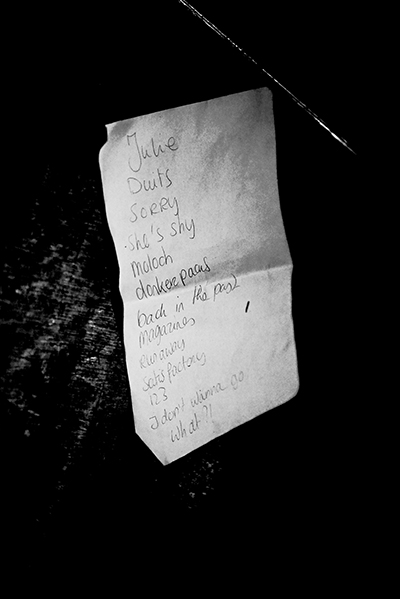 Julie
Duits
SORRY
She's shy
Moloch
donkere paars
back in the past
Magazines
Runaway
Satisfactory
123
I don't wanna go
What?!